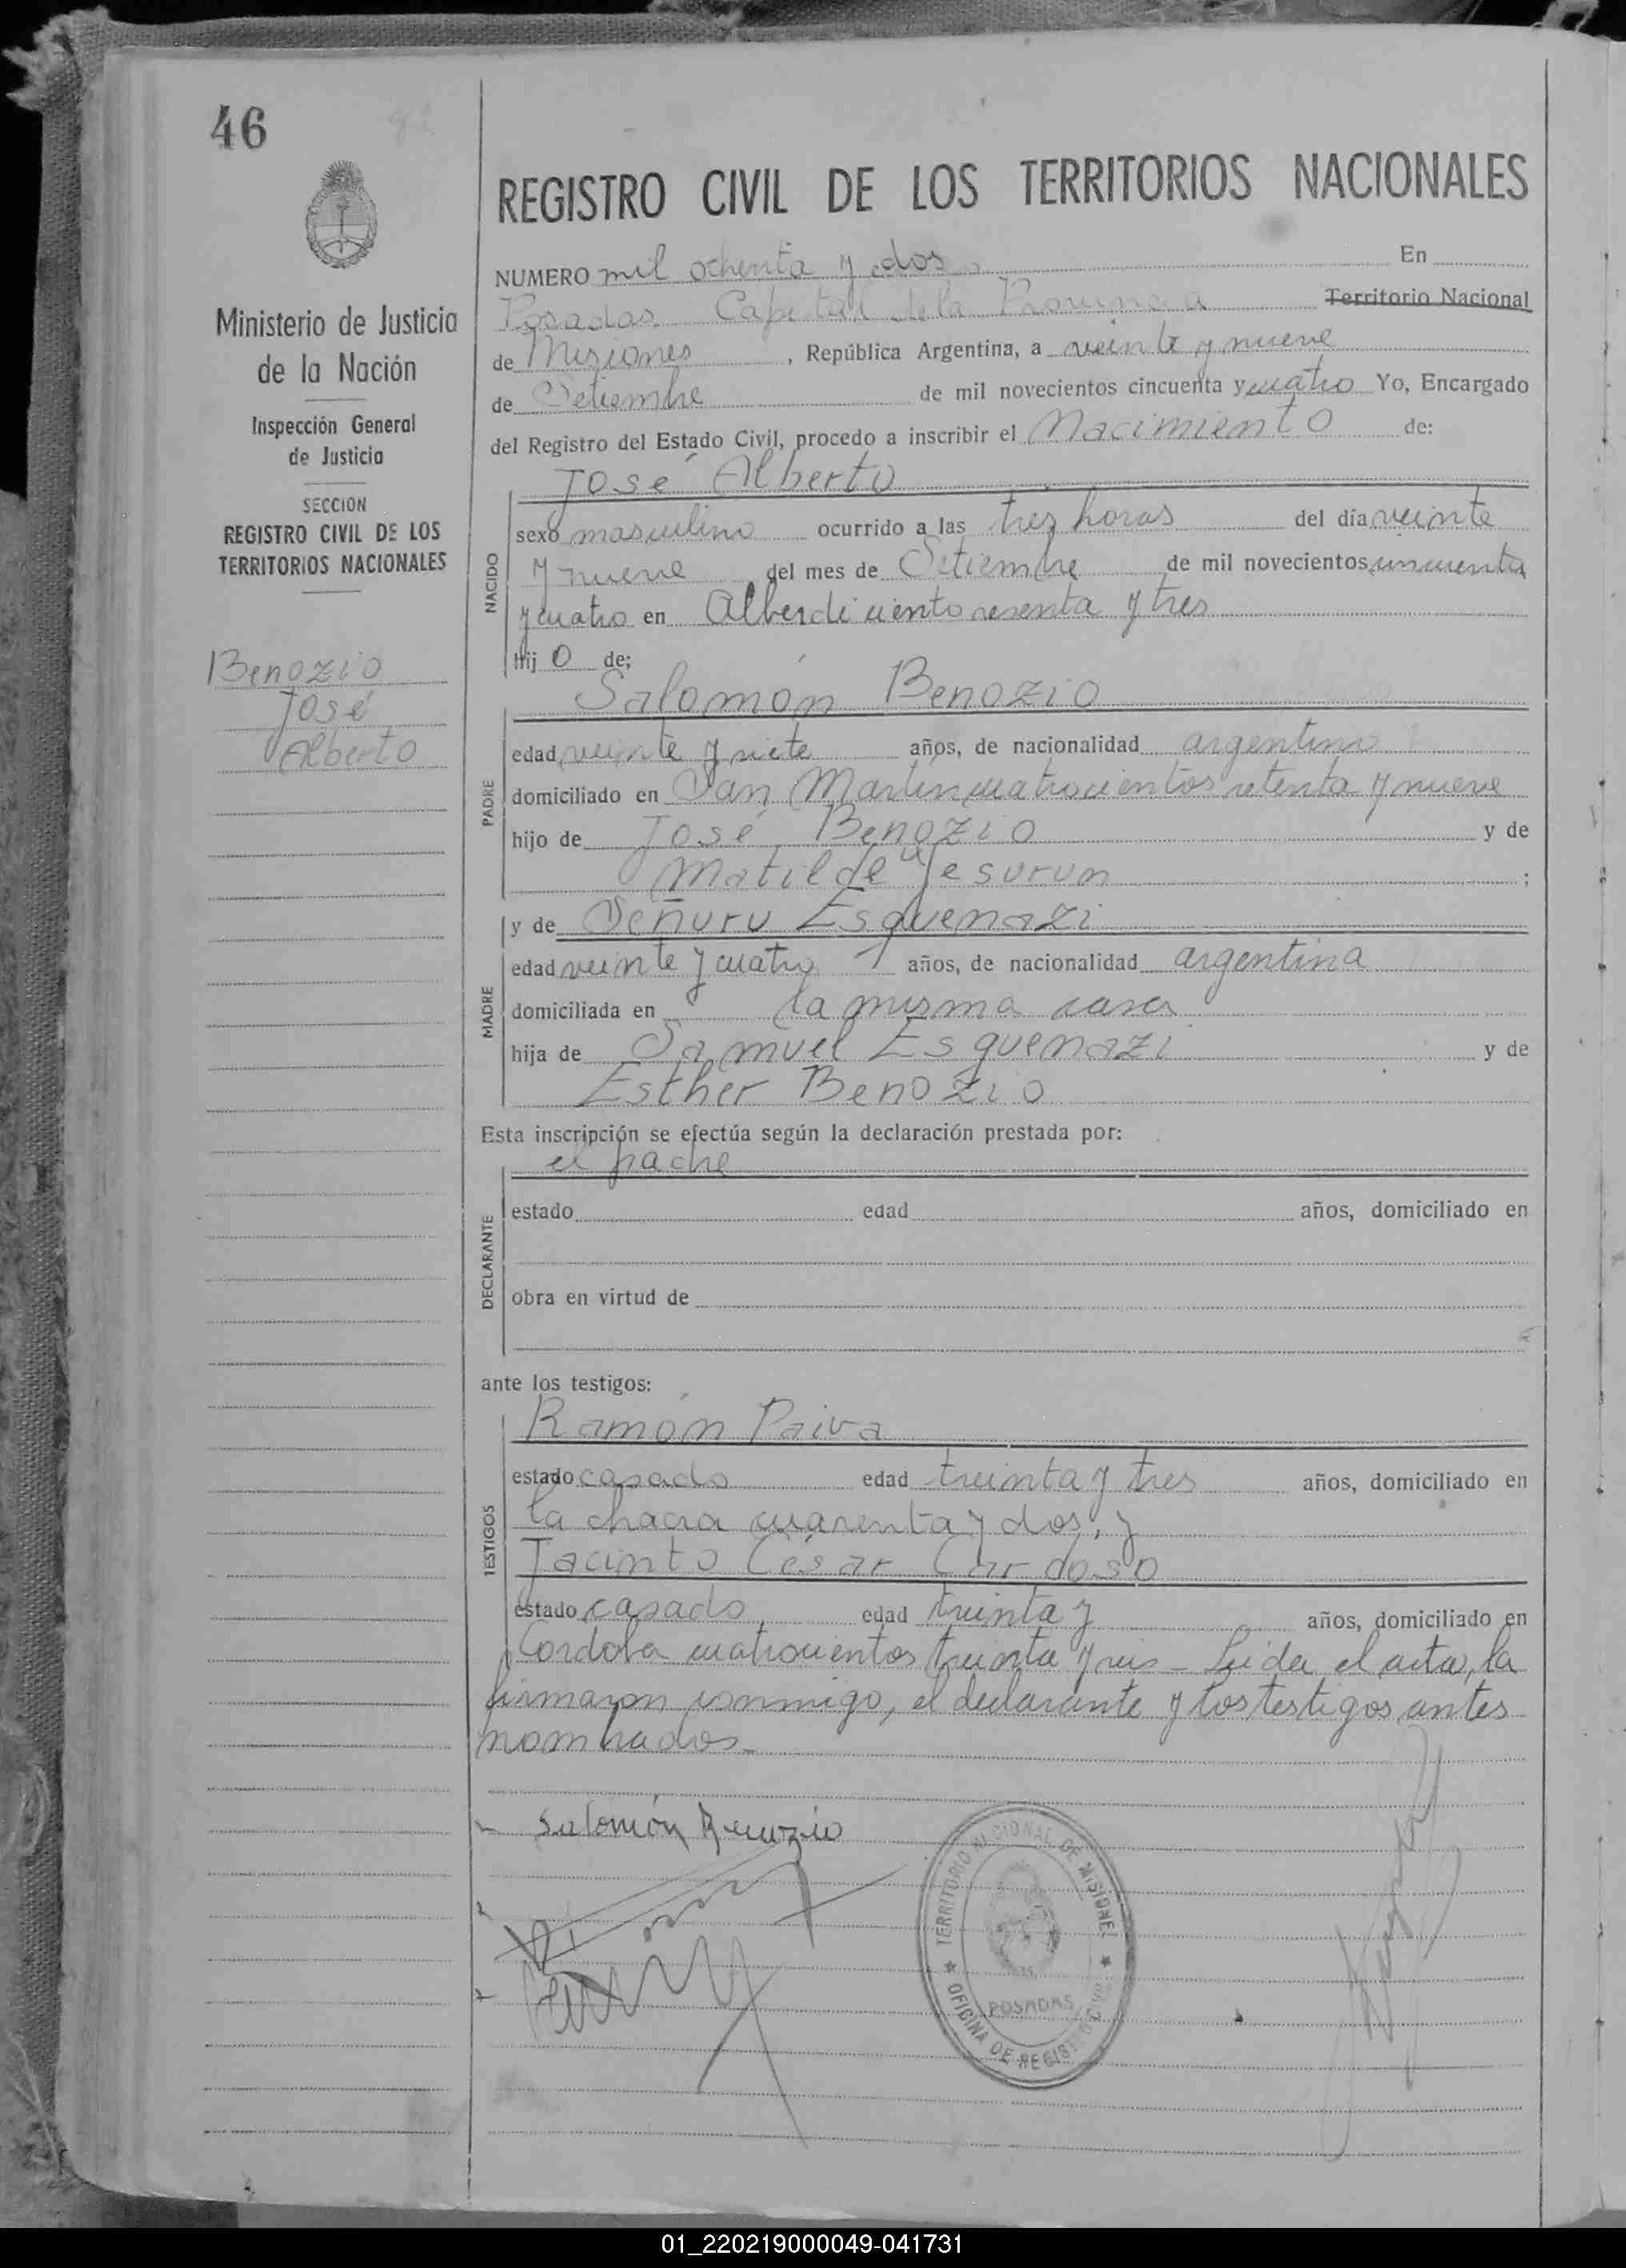 46
REGISTRO CIVIL DE LOS TERRITORIOS NACIONALES
Ministerio de Justicia
de la Nación
Inspección General
de Justicia
SECCION
REGISTRO CIVIL DE LOS
TERRITORIOS NACIONALES
Benozio
José
Alberto
NUMERO mil ochenta y dos En
Posadas Capital de la Provincia Territorio Nacional
de Misiones, República Argentina, a veinte y nueve
de Setiembre de mil novecientos cincuenta y cuatro Yo, Encargado
del Registro del Estado Civil, procedo a inscribir el Nacimiento de:
José Alberto
NACIDO
sexo masculino ocurrido a las tres horas del día veinte
y nueve del mes de Setiembre de mil novecientos cincuenta
y cuatro en Alberdi ciento sesenta y tres
Hij o de;
Salomón Benozio
PADRE
edad veinte y siete años, de nacionalidad argentino
domiciliado en San Martín cuatrocientos setenta y nueve
hijo de José Benozio y de
Matilde Jesurun ;
y de Señuru Esquenazi
MADRE
edad veinte y cuatro años, de nacionalidad argentina
domiciliada en la misma casa
hija de Samuel Esquenazi y de
Esther Benozio
Esta inscripción se efectúa según la declaración prestada por:
el padre
DECLARANTE
estado edad años, domiciliado en
obra en virtud de
ante los testigos:
Ramón Paiva
TESTIGOS
estado casado edad treinta y tres años, domiciliado en
la chacra cuarenta y dos, y
Jacinto César Cardoso
estado casado, edad treinta y años, domiciliado en
Córdoba cuatrocientos treinta y seis - Leída el acta, la
firmaron conmigo, el declarante y los testigos antes
nombrados.
Salomón Benozio
TERRITORIO NACIONAL DE MISIONES
POSADAS
OFICINA DE REGISTRO CIVIL
01_220219000049-041731